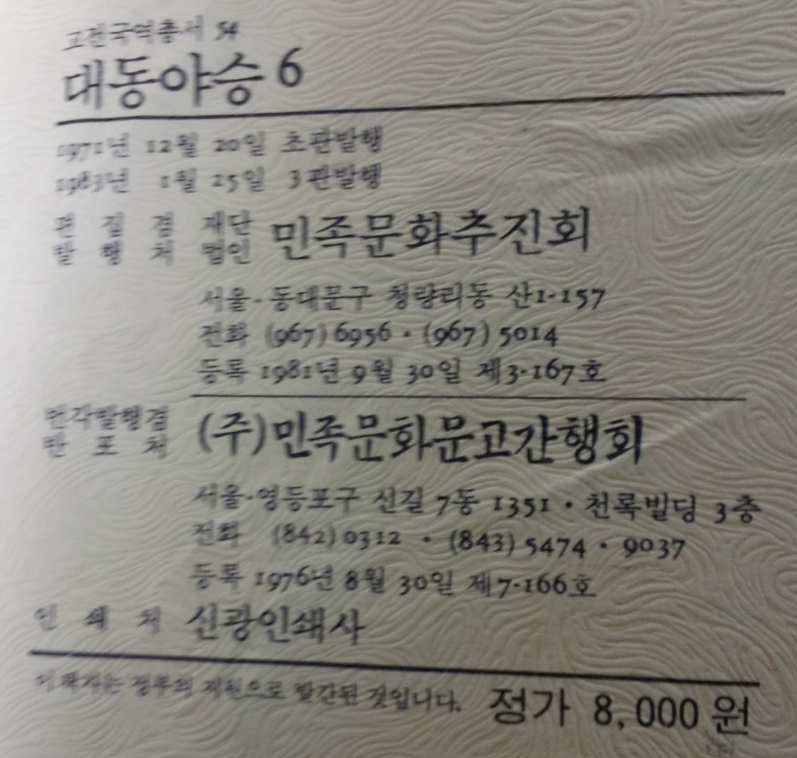 고전국역총서 54
대동야승 6
1971년 12월 20일 초판발행
1983년 1월 25일 3판발행
편집겸 재단
발행처 법인 민족문화추진회
서울·동대문구 청량리동 산1·157
전화 (967)6956·(967)5014
등록 1981년 9월 30일 제3·167호
번각발행겸
반포처 (주)민족문화문고간행회
서울·영등포구 신길 7동 1351·천록빌딩 3층
전화 (842)0312·(843)5474·9037
등록 1976년 8월 30일 제7·166호
인쇄처 신광인쇄사
이책자는 정부의 지원으로 발간된 것입니다. 정가 8,000원